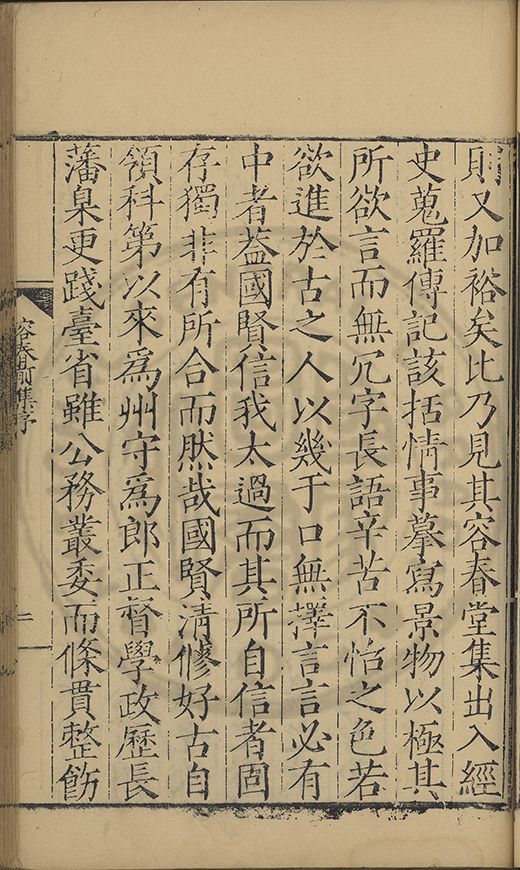 則又加裕矣比乃見其容春堂集出入經
史蒐羅傳記該括情事摹寫景物以極其
所欲言而無冗字長語辛苦不怡之色若
欲進於古之人以幾于口無擇言言必有
中者葢國賢信我太過而其所自信者固
存獨非有所合而然哉國賢清修好古自
領科第以來爲州守爲郎正督學政歷長
藩臬更踐臺省雖公務叢委而條貫整飭
容春前集序
二